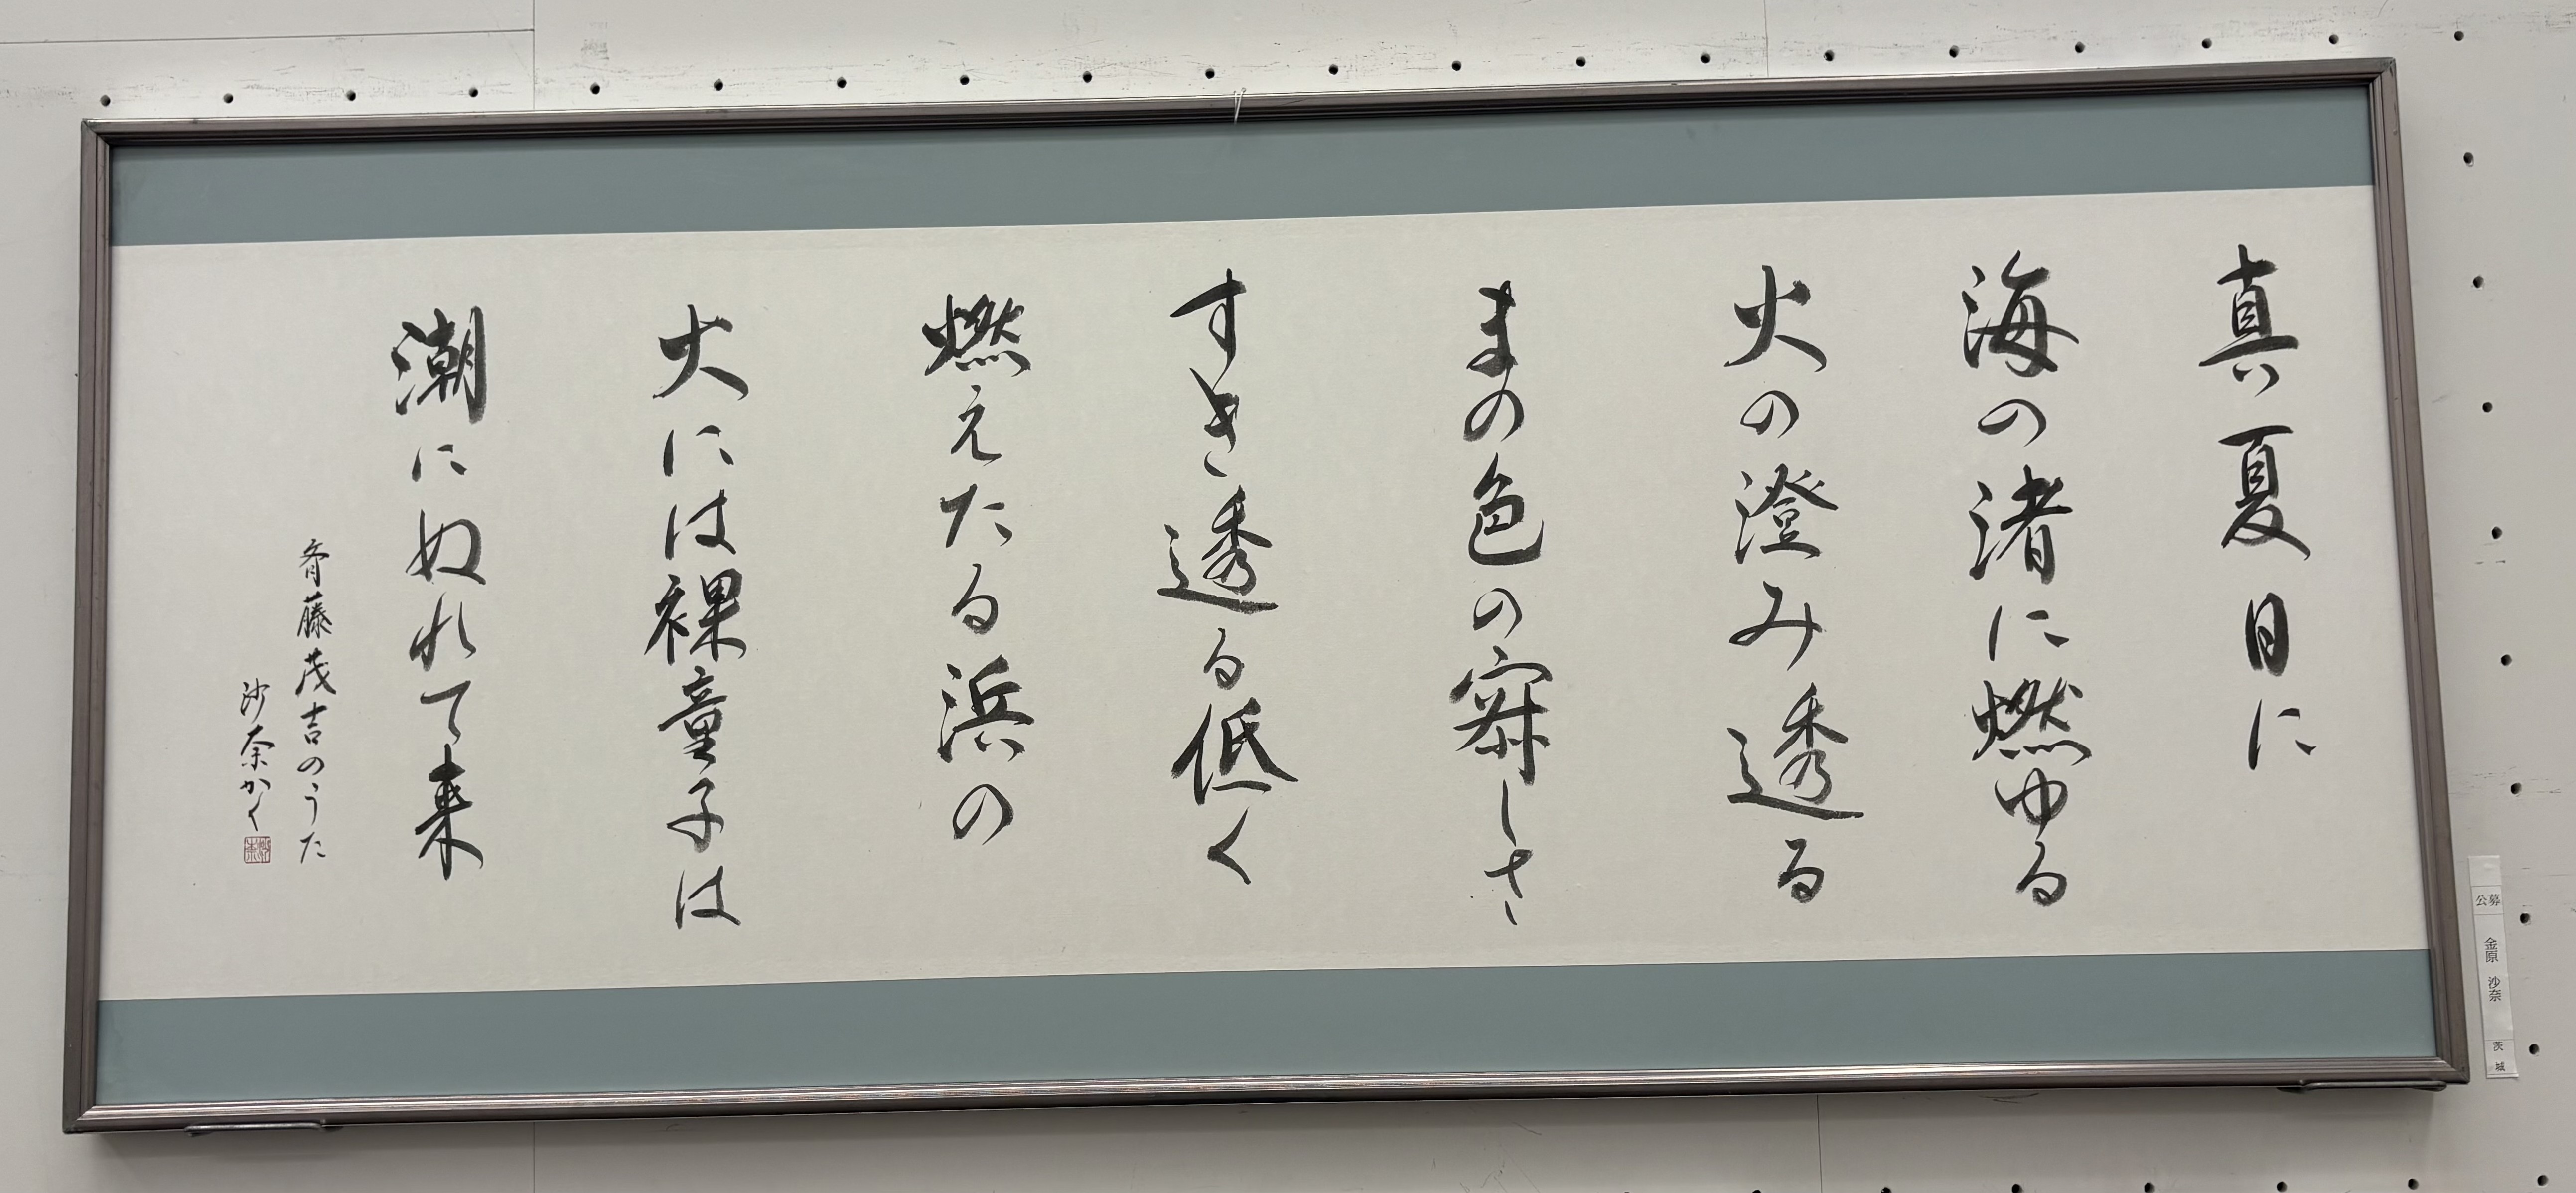 真夏日に
海の渚に燃ゆる
火の澄み透る
まの色の寂しさ
すき透る低く
燃えたる浜の
火には裸童子は
潮にぬれて来
斉藤茂吉のうた
沙奈かく
公募
金原 沙奈
茨城